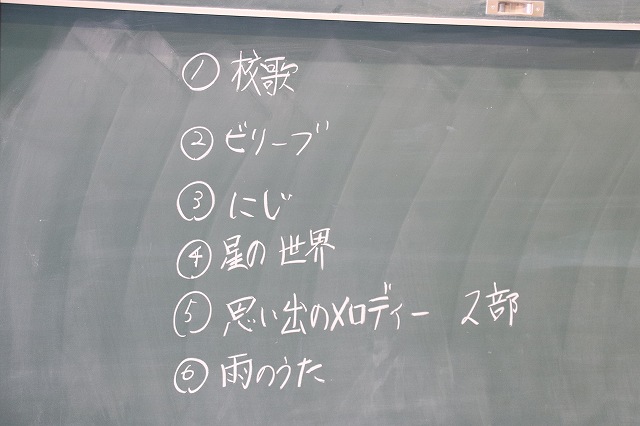 ① 校歌
② ビリーブ
③ にじ
④ 星の世界
⑤ 思い出のメロディー 2部
⑥ 雨のうた